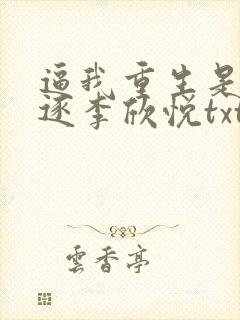 逼我重生是
逐李欣悦txt
雲香亭